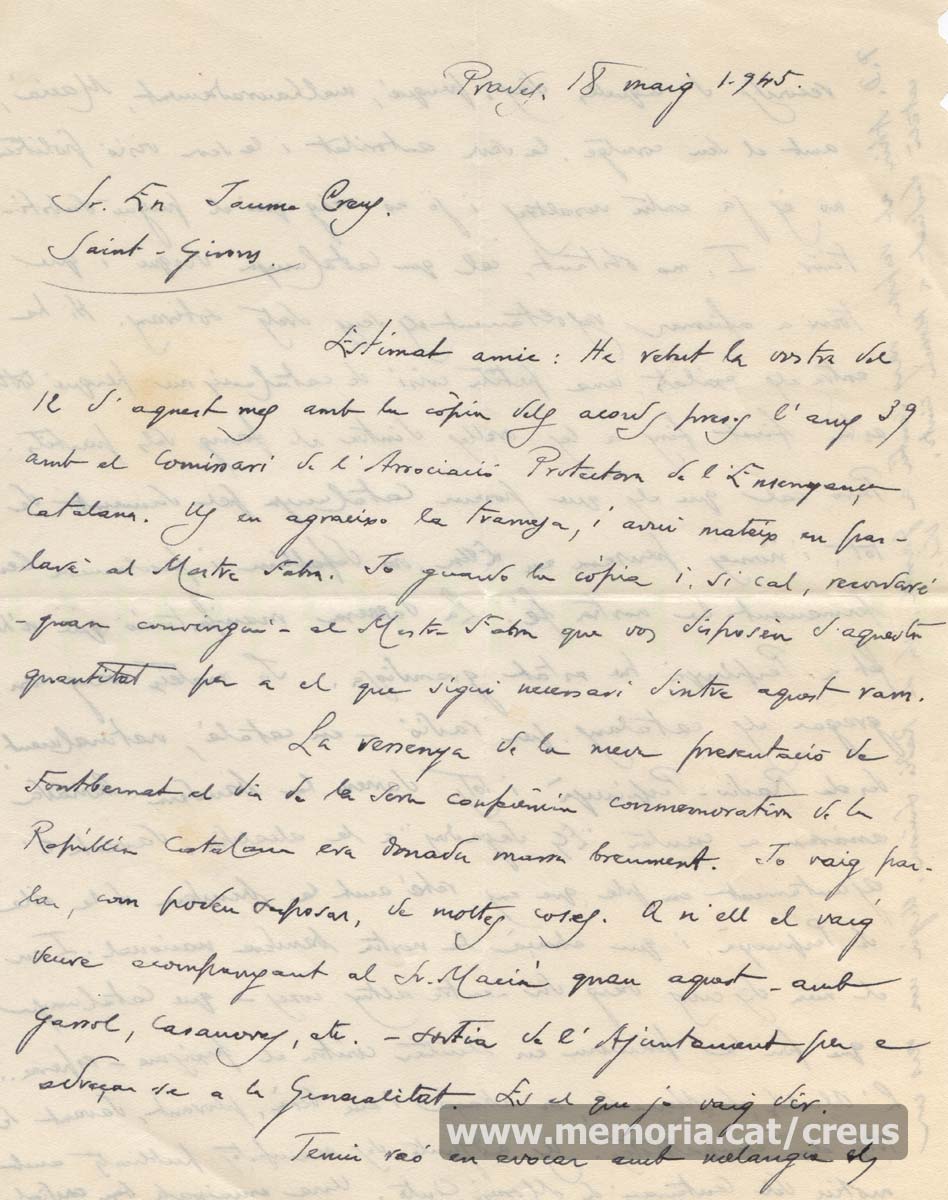 Prades, 18 maig 1.945.
Sr. En Jaume Creus.
Saint-Girons.
Estimat amic: He rebut la vostra del
12 d'aquest mes amb la còpia dels acords presos l'any 39
amb el Comissari de l'Associació Protectora de l'Ensenyança
Catalana. Us en agraeixo la tramesa, i avui mateix en par-
laré al Mestre Fabra. Jo guardo la còpia i, si cal, recordaré
- quan convingui - al Mestre Fabra que vos disposeu d'aquesta
quantitat per a el que sigui necessari dintre aquest ram.
La ressenya de la meva presentació de
Fontbernat el dia de la seva conferència commemorativa de la
República Catalana era donada massa breument. Jo vaig par-
lar, com podeu suposar, de moltes coses. A n'ell el vaig
veure acompanyant al Sr. Macià quan aquest - amb
Gassol, Casanoves, etc. - sortia de l'Ajuntament per a
adreçar-se a la Generalitat. Es el que jo vaig dir.
Teniu raó en evocar amb melangia els
www.memoria.cat/creus